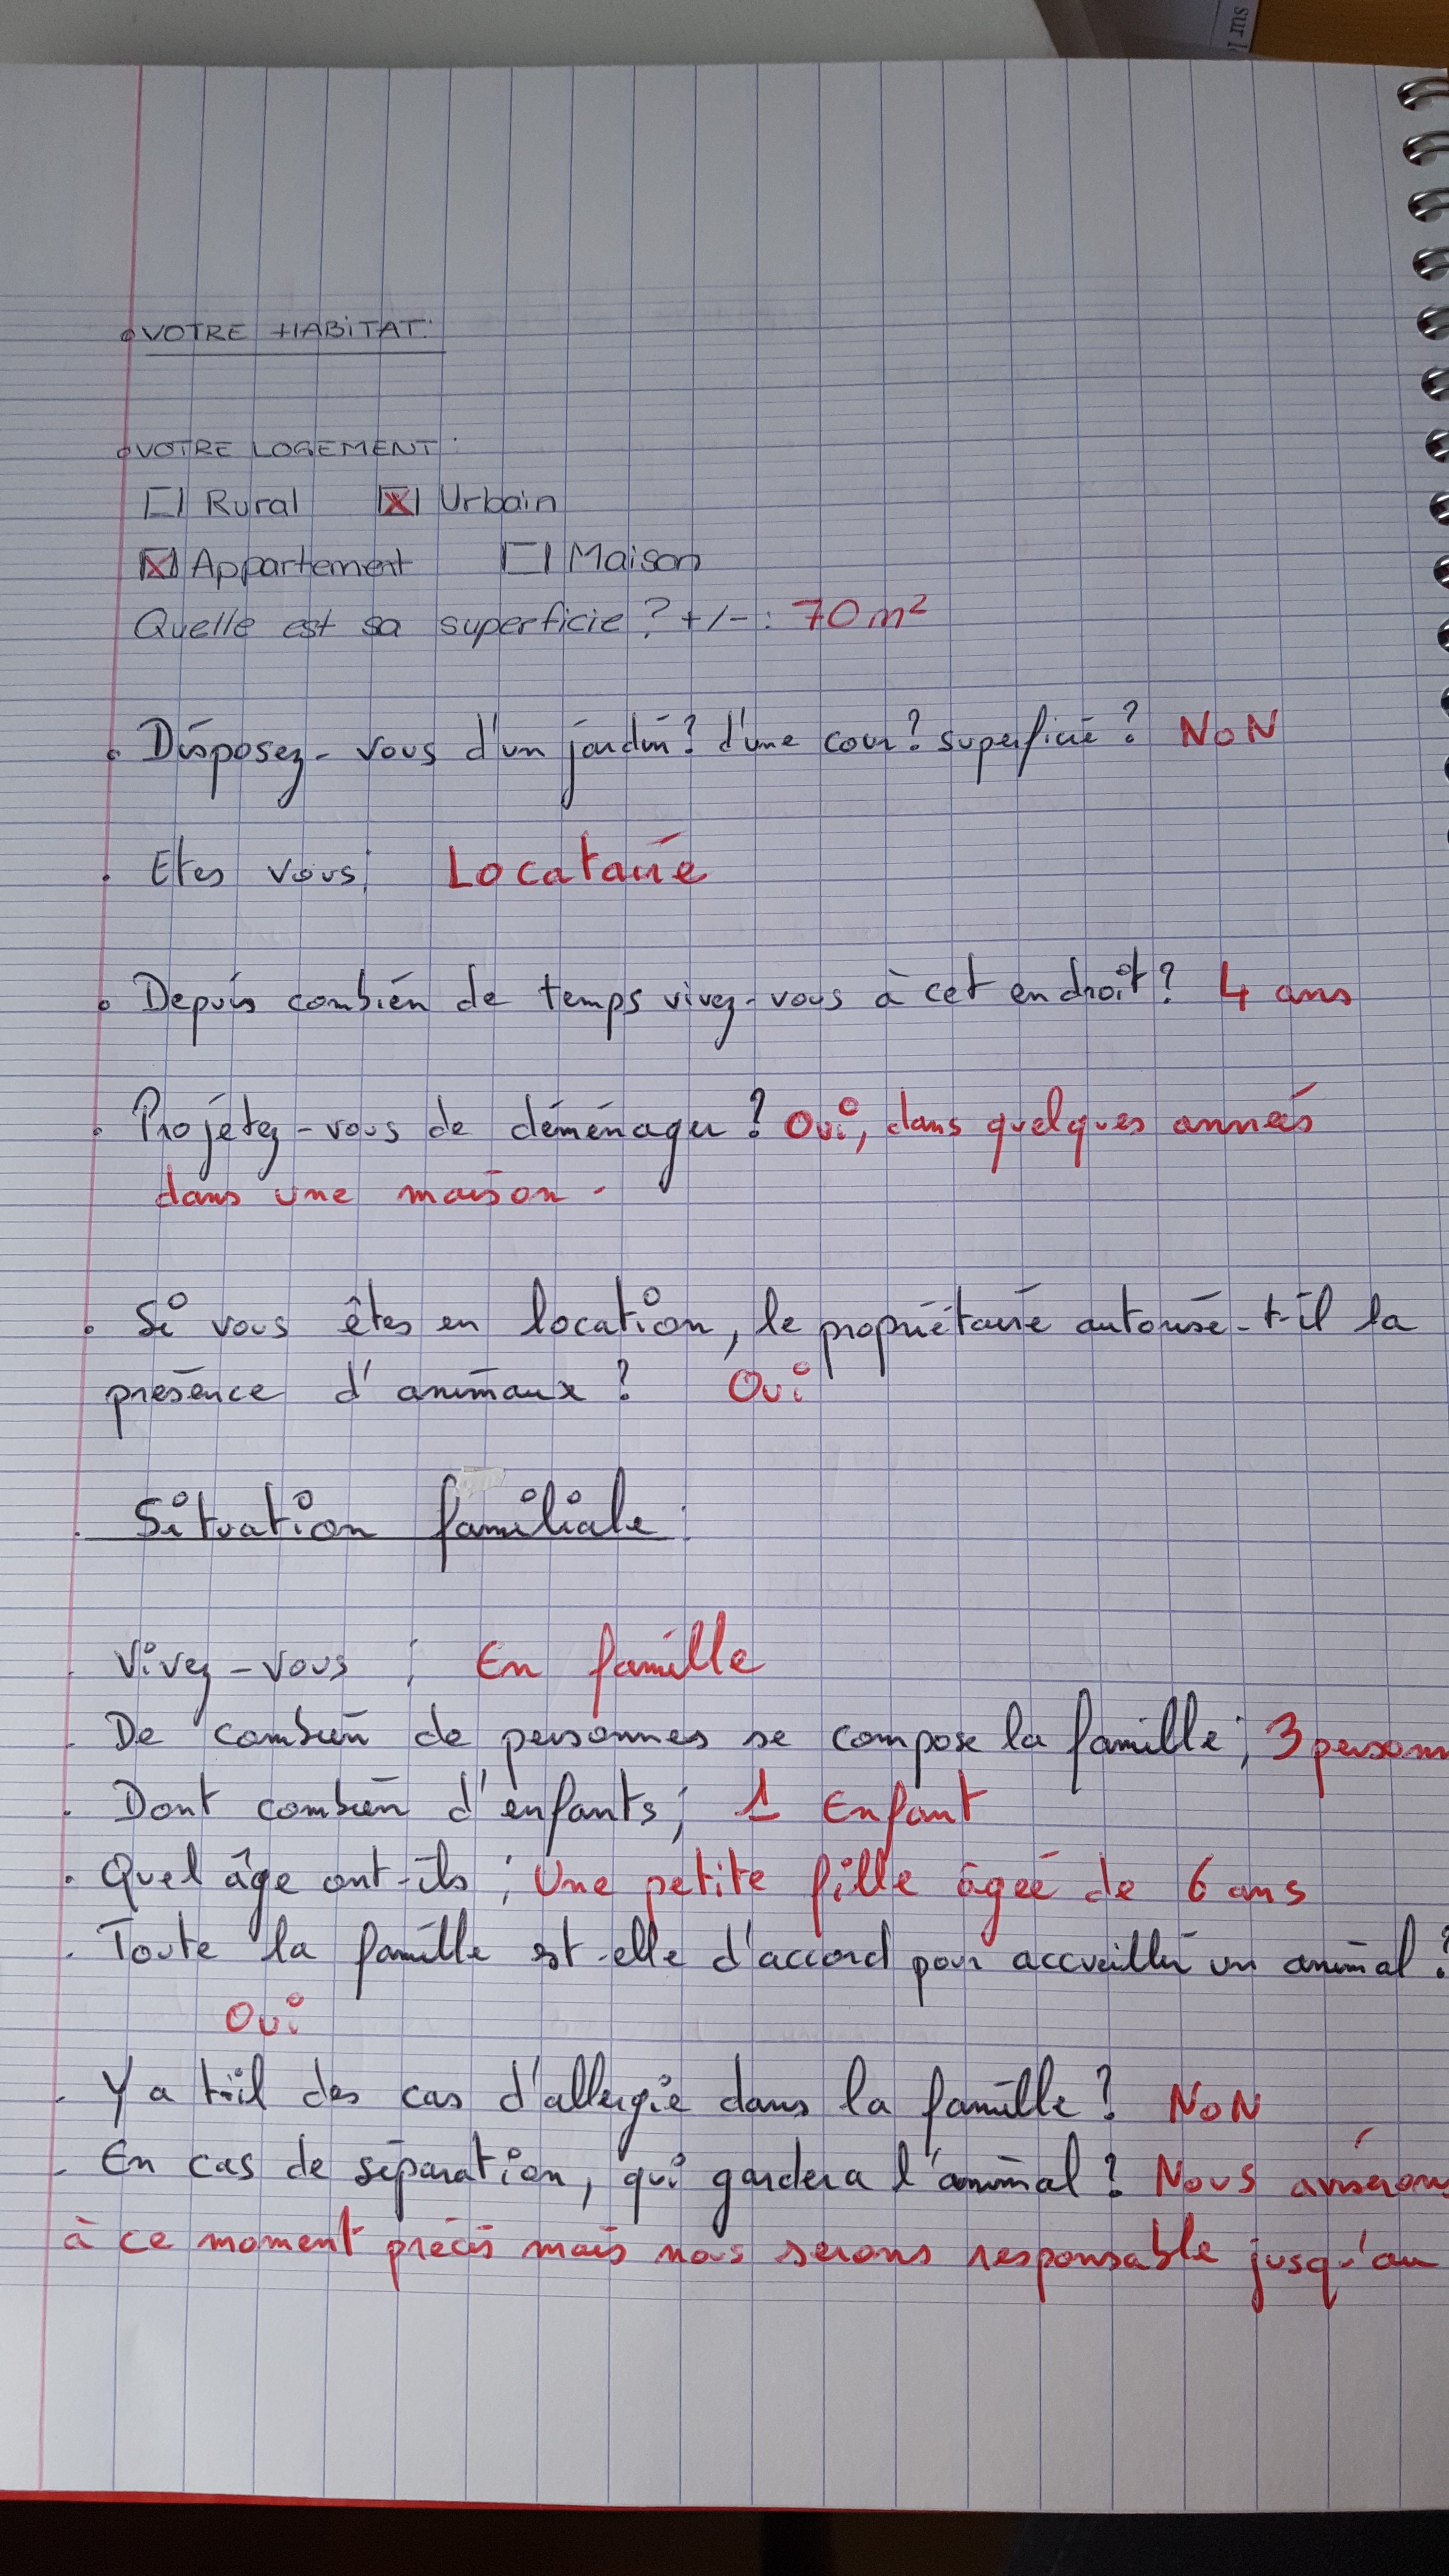 sur l
VOTRE HABITAT:
VOTRE LOGEMENT:
Rural Urbain
Appartement Maison
Quelle est sa superficie? +/- : 70 m²
Disposez-vous d'un jardin? d'une cour? superficie? NON
Etes vous; Locataire
Depuis combien de temps vivez-vous à cet endroit? 4 ans
Projetez-vous de déménager? Oui, dans quelques années
dans une maison.
Si vous êtes en location, le propriétaire autorise-t-il la
présence d'animaux? Oui
Situation familiale:
Vivez-vous ; En famille
De combien de personnes se compose la famille; 3 personn
Dont combien d'enfants; 1 Enfant
Quel âge ont-ils; Une petite fille âgée de 6 ans
Toute la famille est-elle d'accord pour accueillir un animal?
Oui
Y a t-il des cas d'allergie dans la famille? NON
En cas de séparation, qui gardera l'animal? Nous aviserons
à ce moment précis mais nous serons responsable jusqu'au